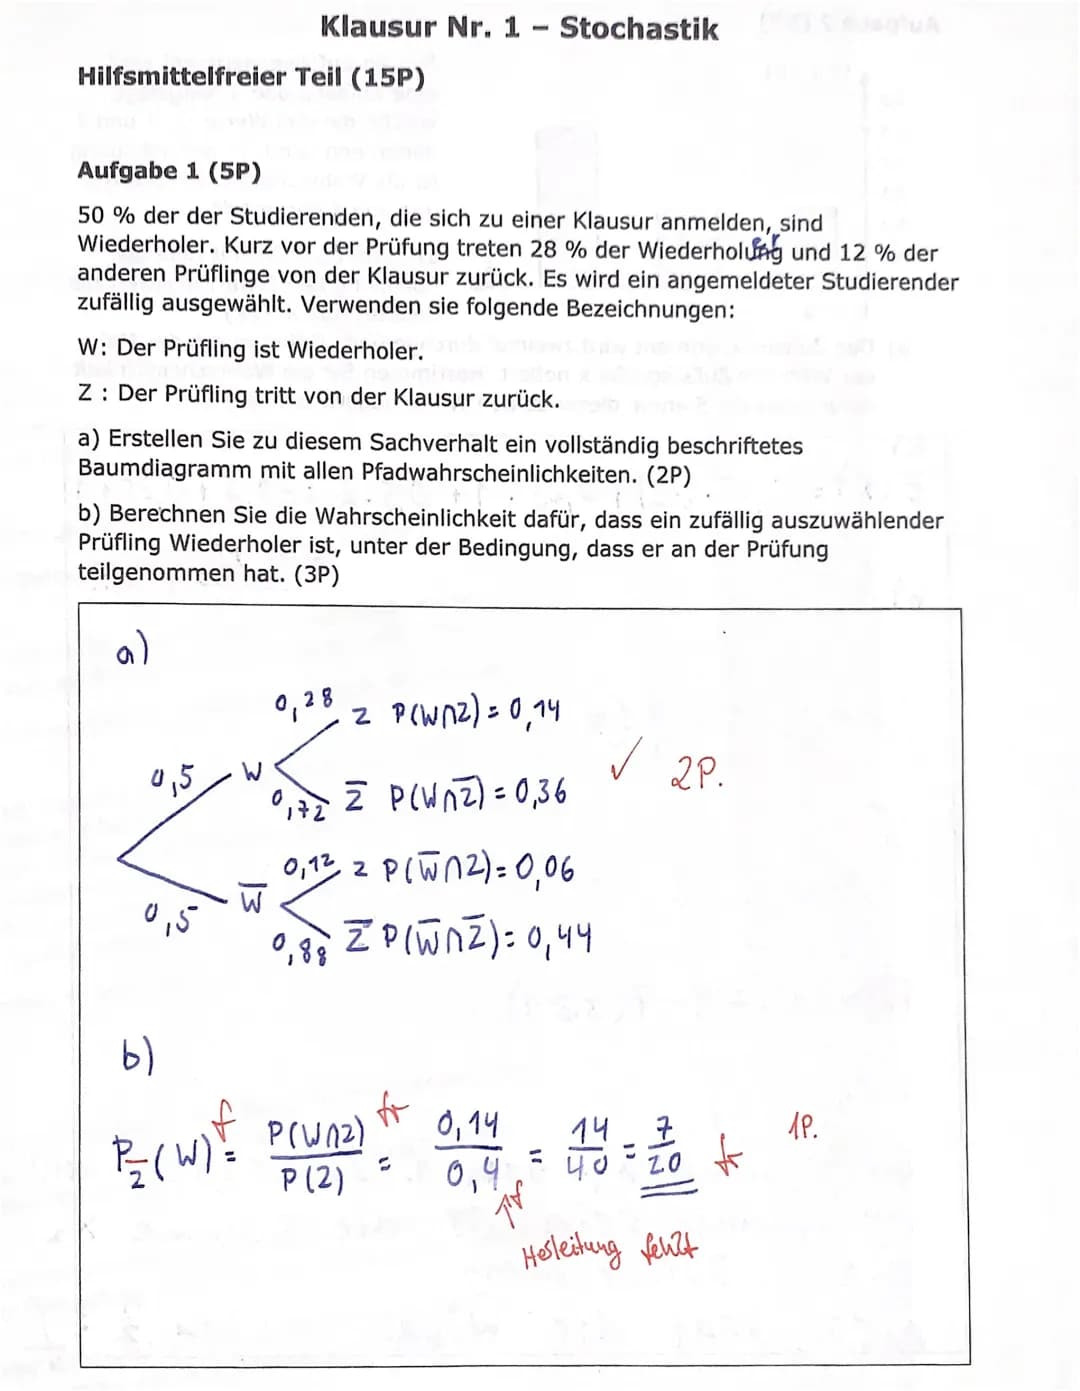 Klausur Nr. 1 – Stochastik
Hilfsmittelfreier Teil (15P)
Aufgabe 1 (5P)
50 % der der Studierenden, die sich zu einer Klausur anmelden, sind
Wiederholer. Kurz vor der Prüfung treten 28 % der Wiederholer und 12 % der
anderen Prüflinge von der Klausur zurück. Es wird ein angemeldeter Studierender
zufällig ausgewählt. Verwenden sie folgende Bezeichnungen:
W: Der Prüfling ist Wiederholer.
Z : Der Prüfling tritt von der Klausur zurück.
a) Erstellen Sie zu diesem Sachverhalt ein vollständig beschriftetes
Baumdiagramm mit allen Pfadwahrscheinlichkeiten. (2P)
b) Berechnen Sie die Wahrscheinlichkeit dafür, dass ein zufällig auszuwählender
Prüfling Wiederholer ist, unter der Bedingung, dass er an der Prüfung
teilgenommen hat. (3P)
a)
0,28 Z P(W∩Z) = 0,14
0,5 W ✓ 2P.
0,72 Z̅ P(W∩Z̅) = 0,36
0,12 Z P(W̅∩Z) = 0,06
0,5 W̅
0,88 Z̅ P(W̅∩Z̅) = 0,44
b)
P_Z̅(W) = f P(W∩Z)/P(Z) = fr 0,14/0,4 = 14/40 = 7/20 fr 1P.
↑f
Herleitung fehlt